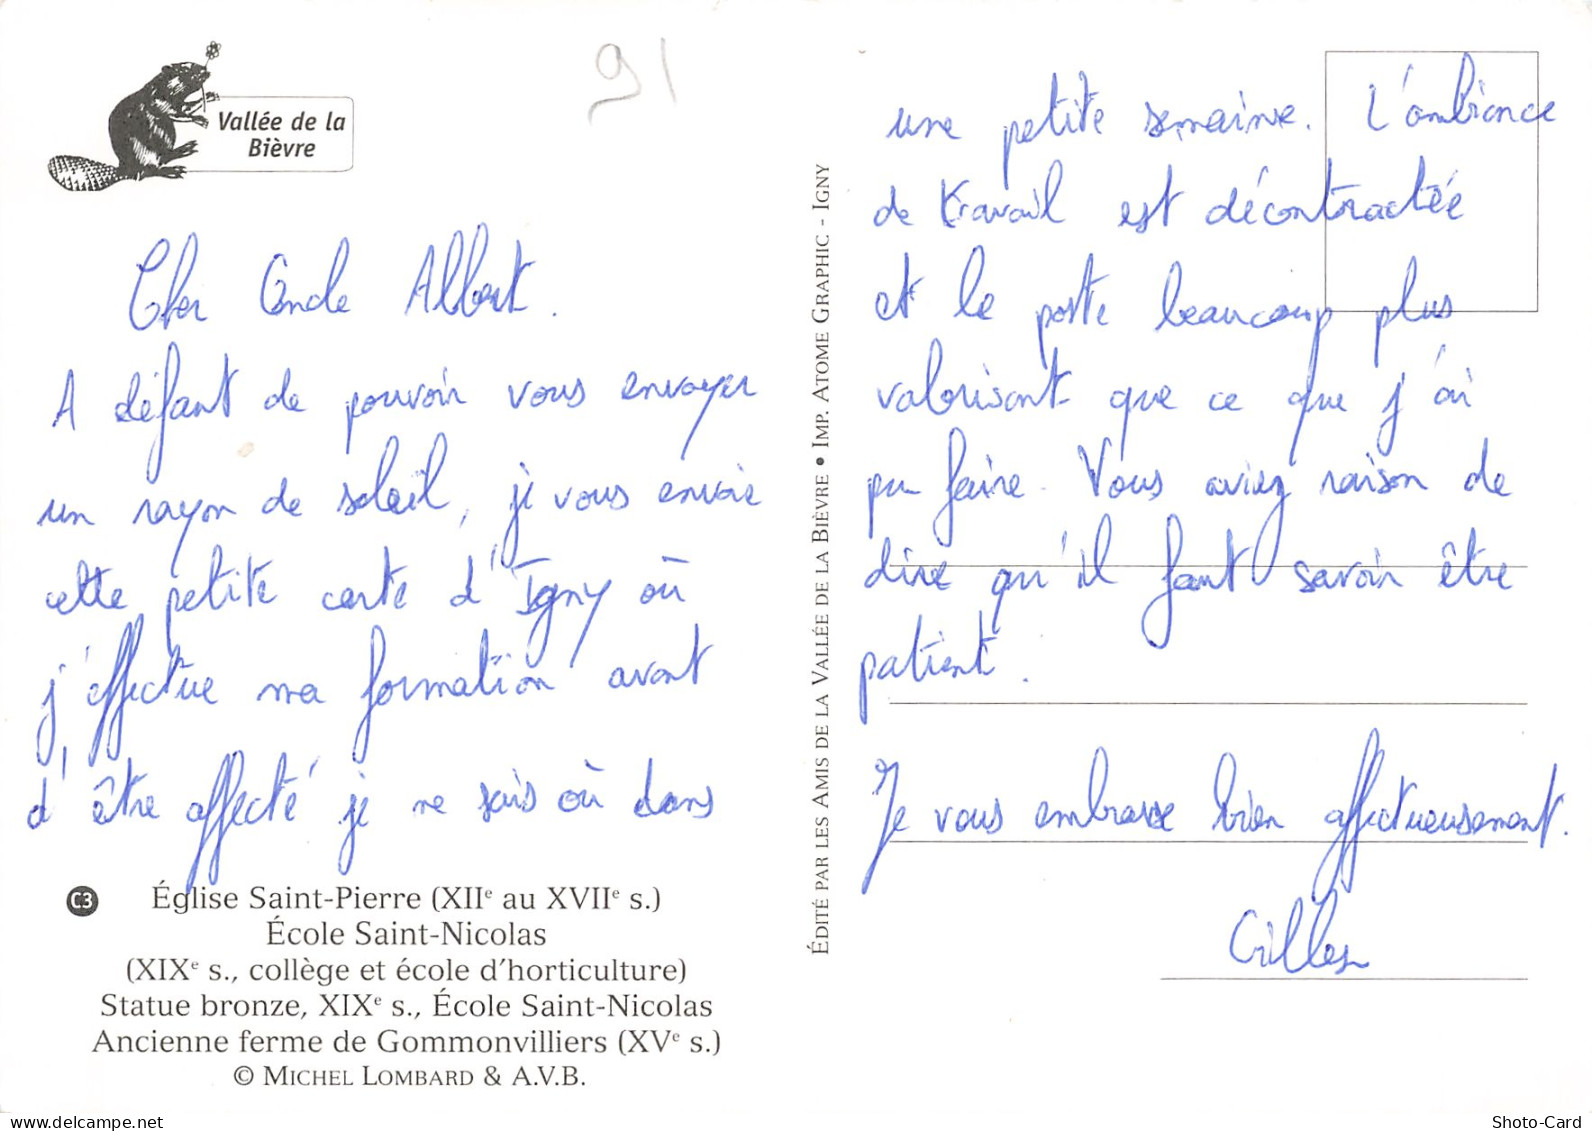 91
Vallée de la
Bièvre
Cher Oncle Albert.
A défaut de pouvoir vous envoyer
un rayon de soleil, je vous envoie
cette petite carte d'Igny où
j'effectue ma formation avant
d'être affecté je ne sais où dans
C3
Église Saint-Pierre (XIIe au XVIIe s.)
École Saint-Nicolas
(XIXe s., collège et école d'horticulture)
Statue bronze, XIXe s., École Saint-Nicolas
Ancienne ferme de Gommonvilliers (XVe s.)
© MICHEL LOMBARD & A.V.B.
ÉDITÉ PAR LES AMIS DE LA VALLÉE DE LA BIÈVRE • IMP. ATOME GRAPHIC - IGNY
une petite semaine. L'ambiance
de travail est décontractée
et le poste beaucoup plus
valorisant que ce que j'ai
pu faire. Vous aviez raison de
dire qu'il faut savoir être
patient.
Je vous embrasse bien affectueusement.
Gilles
Shoto-Card